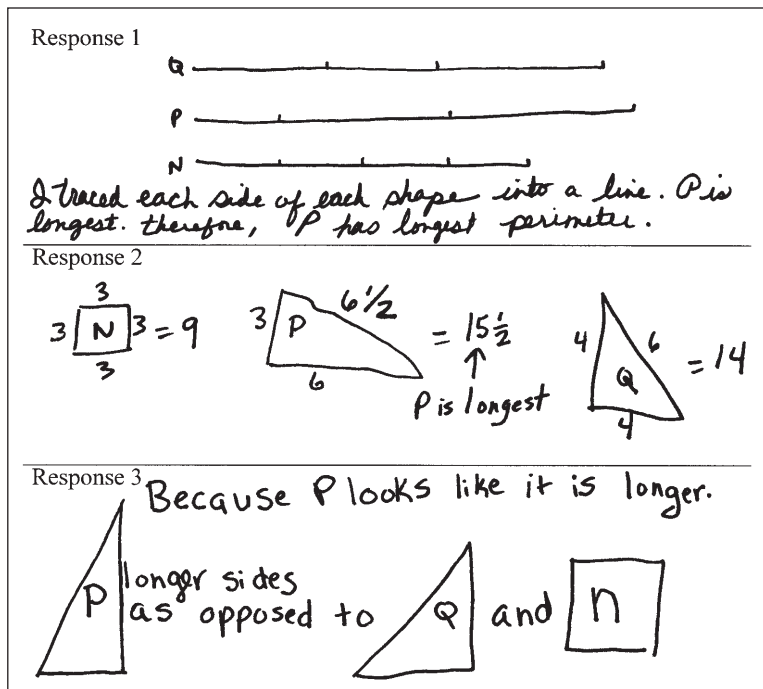 Response 1
Q
P
N
I traced each side of each shape into a line. P is
longest. therefore, P has longest perimeter.
Response 2
3
3 N 3 = 9
3
3 P 6 1/2
6
= 15 1/2
P is longest
4 Q 6
4
= 14
Response 3
Because P looks like it is longer.
P longer sides
as opposed to Q and n